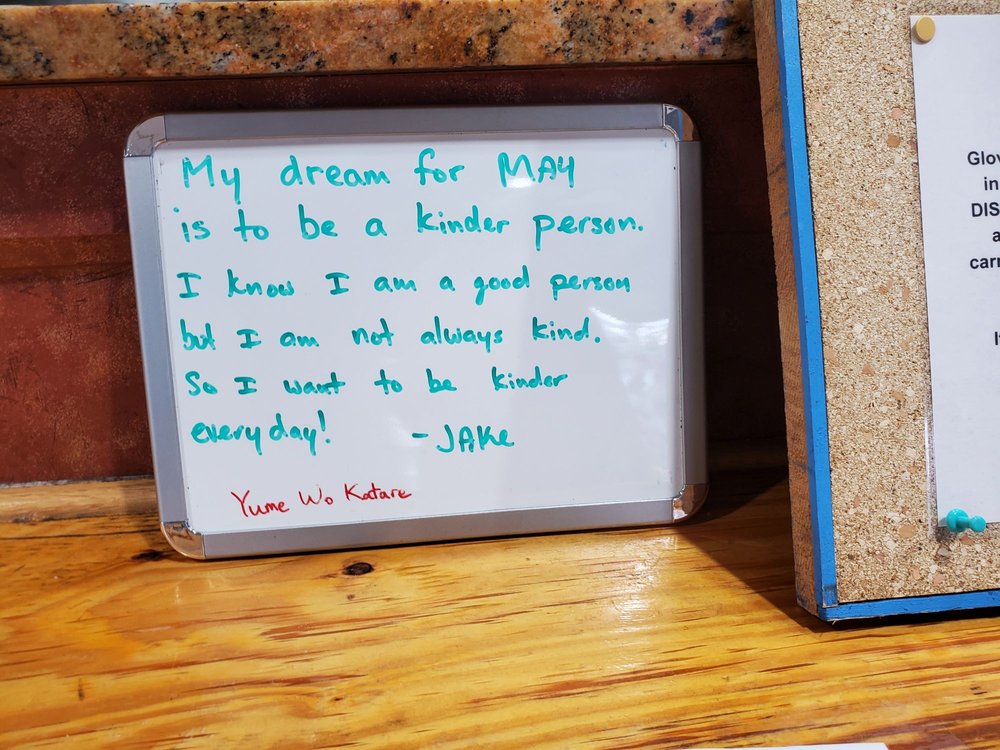 My dream for MAY
is to be a kinder person.
I know I am a good person
but I am not always kind.
So I want to be kinder
everyday! -JAKe
Yume Wo Katare
Glov
in
DIS
a
carr